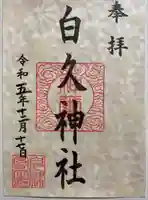 奉拝
白久神社
令和五年十二月十七日